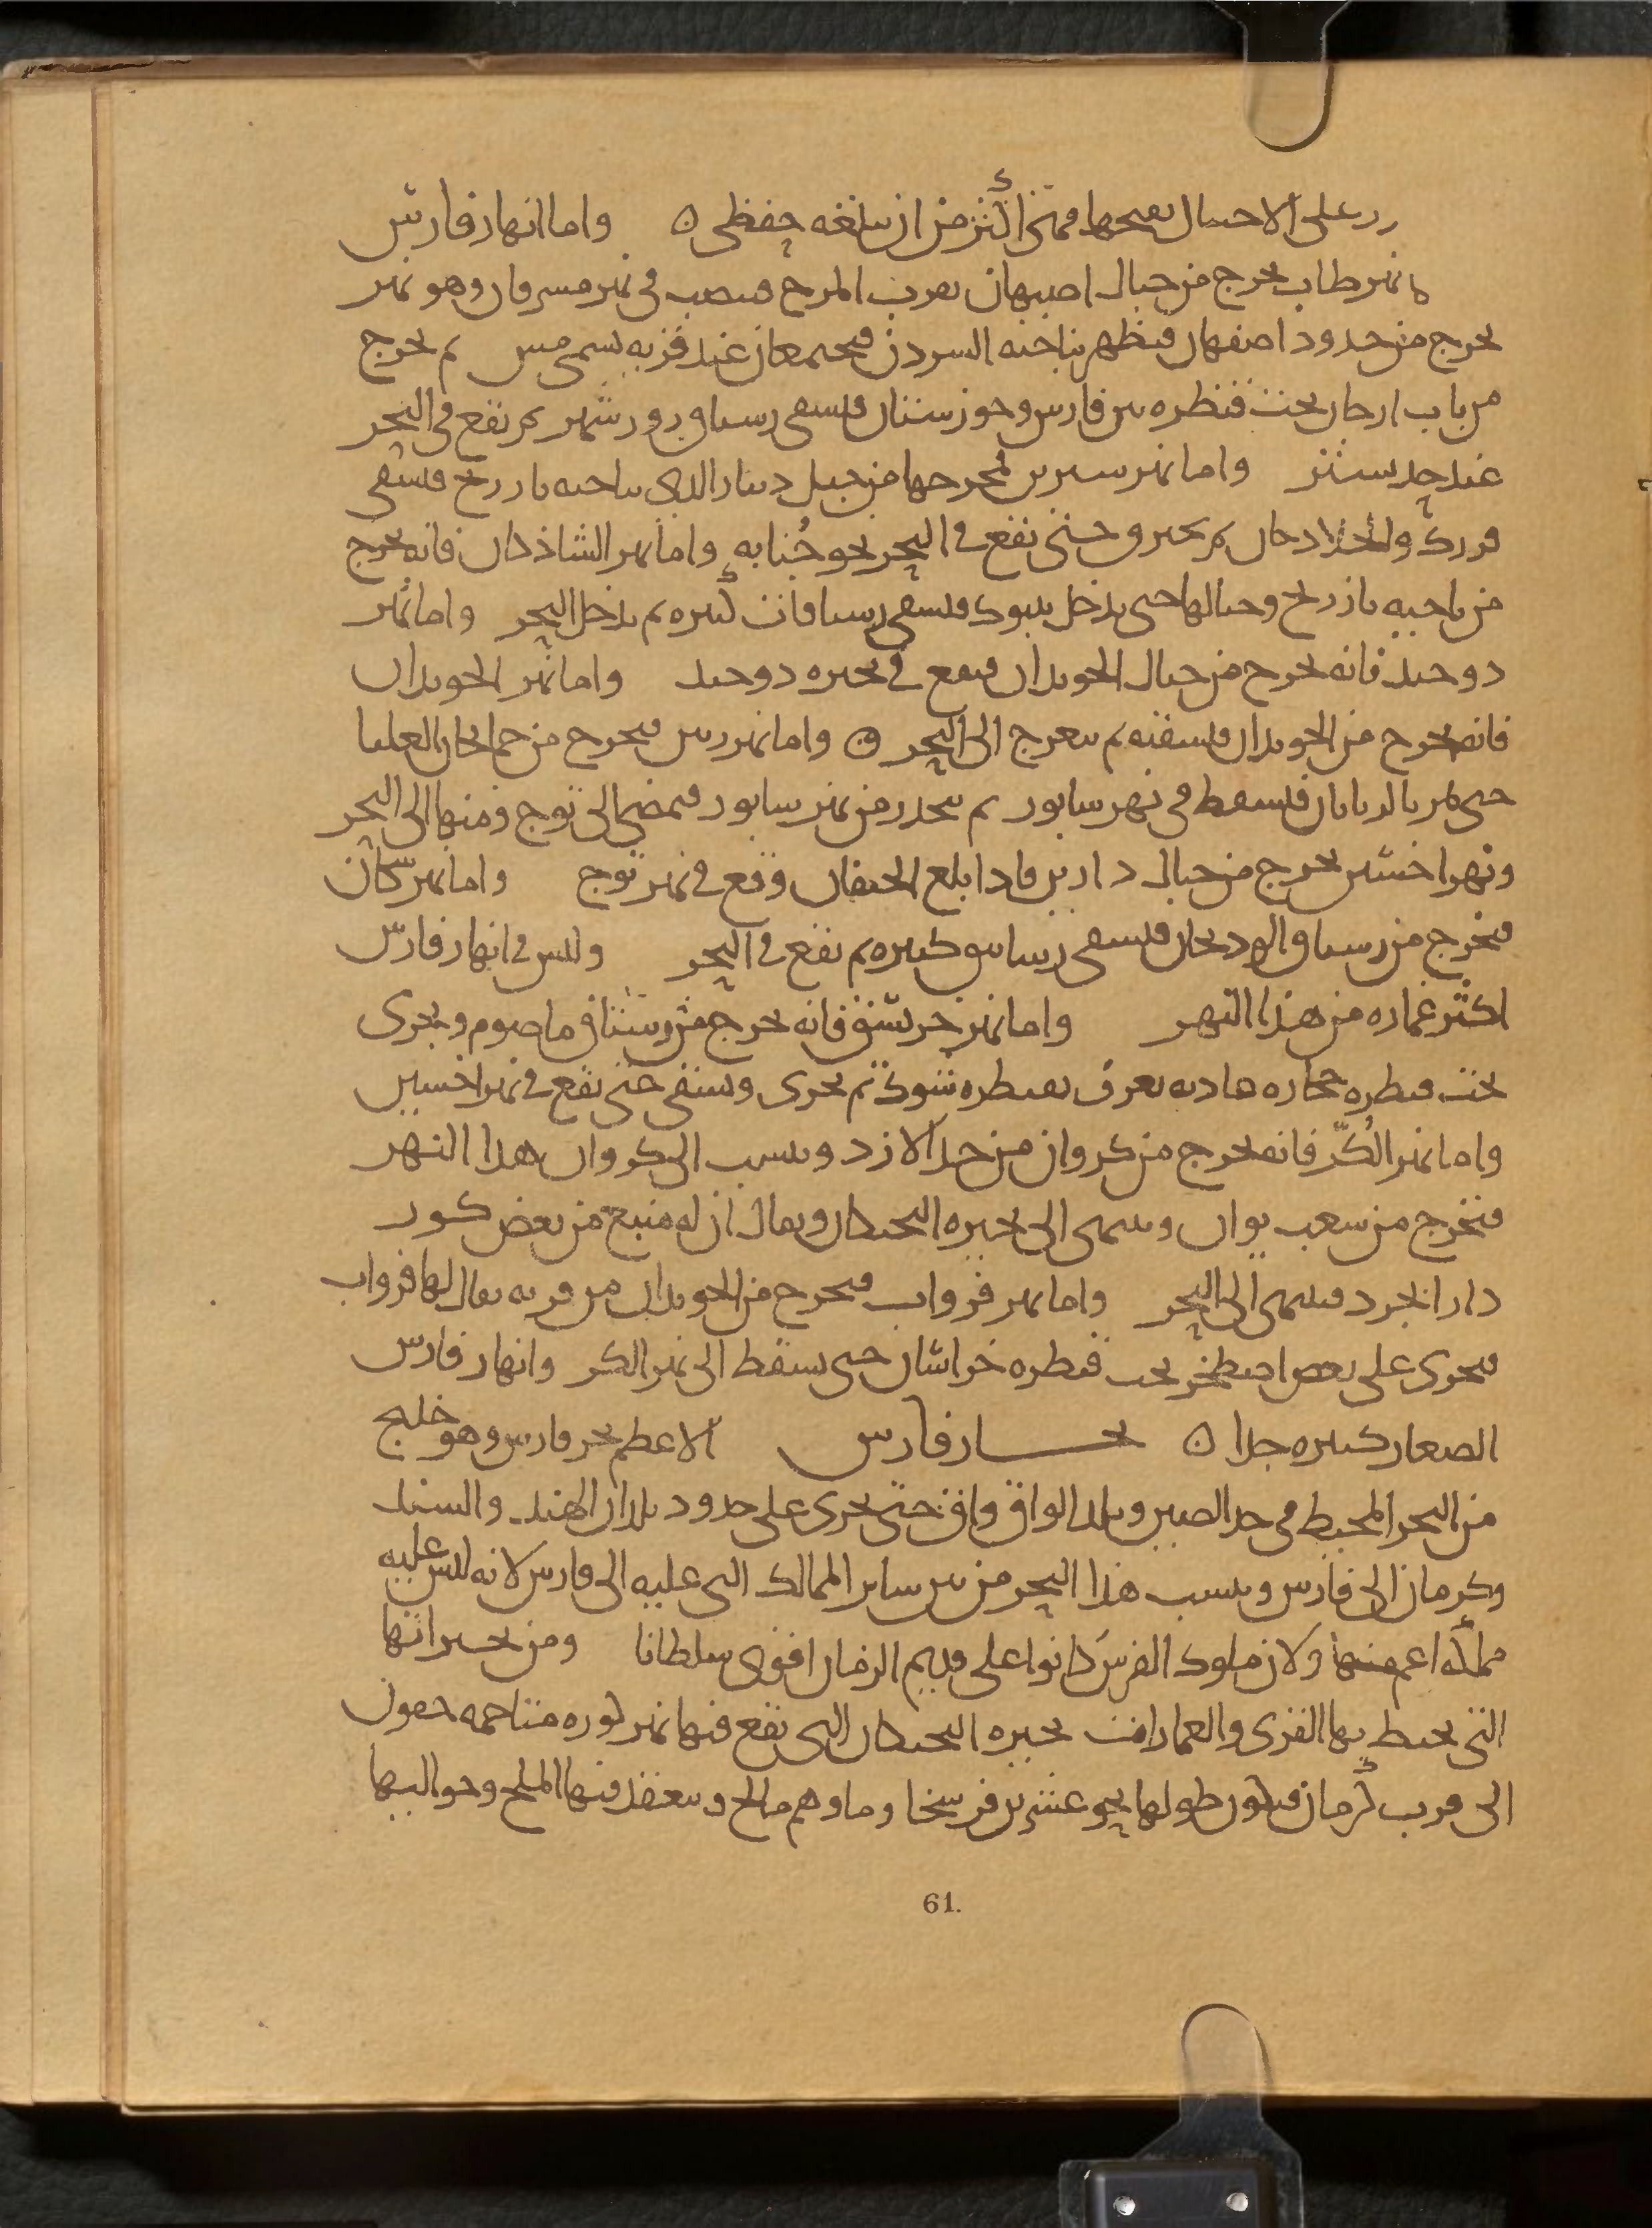 رر على الاحتيال بفتحها فهى اكثر من ان يبلغه حفظى ن واما انهار فارس
نهر طاب يخرج من جبال اصبهان بقرب المرج فيصب فى نهر مسرقان وهو نهر
يخرج من حدود اصفهان فيظهر بناحية السردن فيجتمعان عند قرية تسمى مس ثم يخرج
من باب ارجان تحت قنطرة بين فارس وخوزستان فيسقى رستاق ريور شهر ثم يقع فى البحر
عند حد تستر واما نهر سيرين فمخرجها من جبل دينار الذى بناحية بازرنج فيسقى
فررك والجلادجان ثم يخترق حتى يقع فى البحر نحو جُنابة واما نهر الشاذكان فانه يخرج
من ناحية بازرنج وجبالها حتى يدخل تنبوك فيسقى رساتاقات كثيرة ثم يدخل البحر واما نهر
دوخيذ فانه يخرج من جبال الخوبذان فيقع فى بحيرة دوخيذ واما نهر الخوبذان
فانه يخرج من الخوبذان فيسقيه ثم ينعرج الى البحر ن واما نهر رس فيخرج من خمايجان العليا
حتى يمر بالزيانان فيسقط فى نهر سابور ثم ينحدر من نهر سابور فيمضى الى توج ومنها الى البحر
ونهر اخشين يخرج من جبال دارين فاذا بلغ الجنقان وقع فى نهر توج واما نهر سكان
فيخرج من رستاق الرودنجان فيسقى رساتيق كثيرة ثم يقع فى البحر وليس فى انهار فارس
اكثر عمارة من هذا النهر واما نهر خرشيق فانه يخرج من رستاق ماصرم ويجرى
تحت قنطرة حجارة عادية تعرف بقنطرة سوك ثم يجرى ويسقى حتى يقع فى نهر اخشين
واما نهر الكُرّ فانه يخرج من كروان من حد الازد وينسب الى كروان هذا النهر
فيخرج من شعب بوان وينتهى الى بحيرة البختكان ويقال ان له منبع من بعض كور
دارابجرد فينتهى الى البحر واما نهر فرواب فيخرج من الخوبذان من قرية يقال لها فرواب
فيجرى على بعض اصطخر تحت قنطرة خراسان حتى يسقط الى نهر الكر وانهار فارس
الصغار كثيرة جدا ن بحار فارس الاعظم بحر فارس وهو خليج
من البحر المحيط فى حد الصين وبلد الواق واق حتى يجرى على حدود بلدان الهند والسند
وكرمان الى فارس وينسب هذا البحر من بين ساير الممالك التى عليه الى فارس لانه ليس عليه
مملكة اعم منها ولان ملوك الفرس كانوا على قديم الزمان اقوى سلطانا ومن بحيراتها
التى يحيط بها القرى والعمارات بحيرة البختكان التى يقع فيها نهر لكوره متاخمة حفون
الى قرب كرمان فيكون طولها نحو عشرين فرسخا وماوهم مالح وينعقد فيها الملح وحواليها
61.